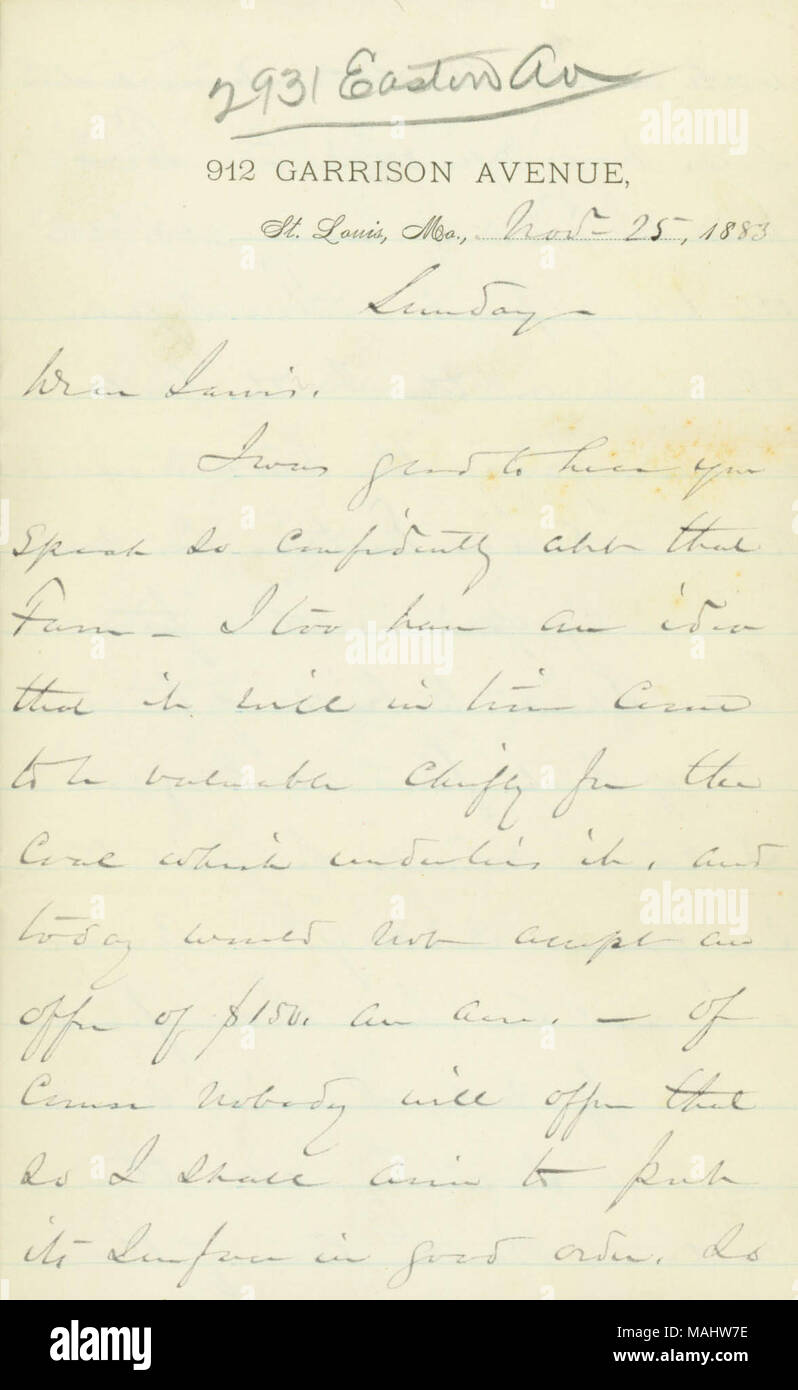 2931 Easton Av
912 GARRISON AVENUE,
St. Louis, Mo., Nov 25, 1883
Sunday
Dear Lewis.
I was glad to hear you
speak so confidently abt that
Farm - I too have an idea
that it will in time come
to be valuable chiefly for the
Coal which underlies it, and
today would not accept an
offer of $150. an acre. - of
Course nobody will offer that
So I shall aim to put
its Surface in good order. So
alamy
alamy
Image ID: MAHW7E
www.alamy.com